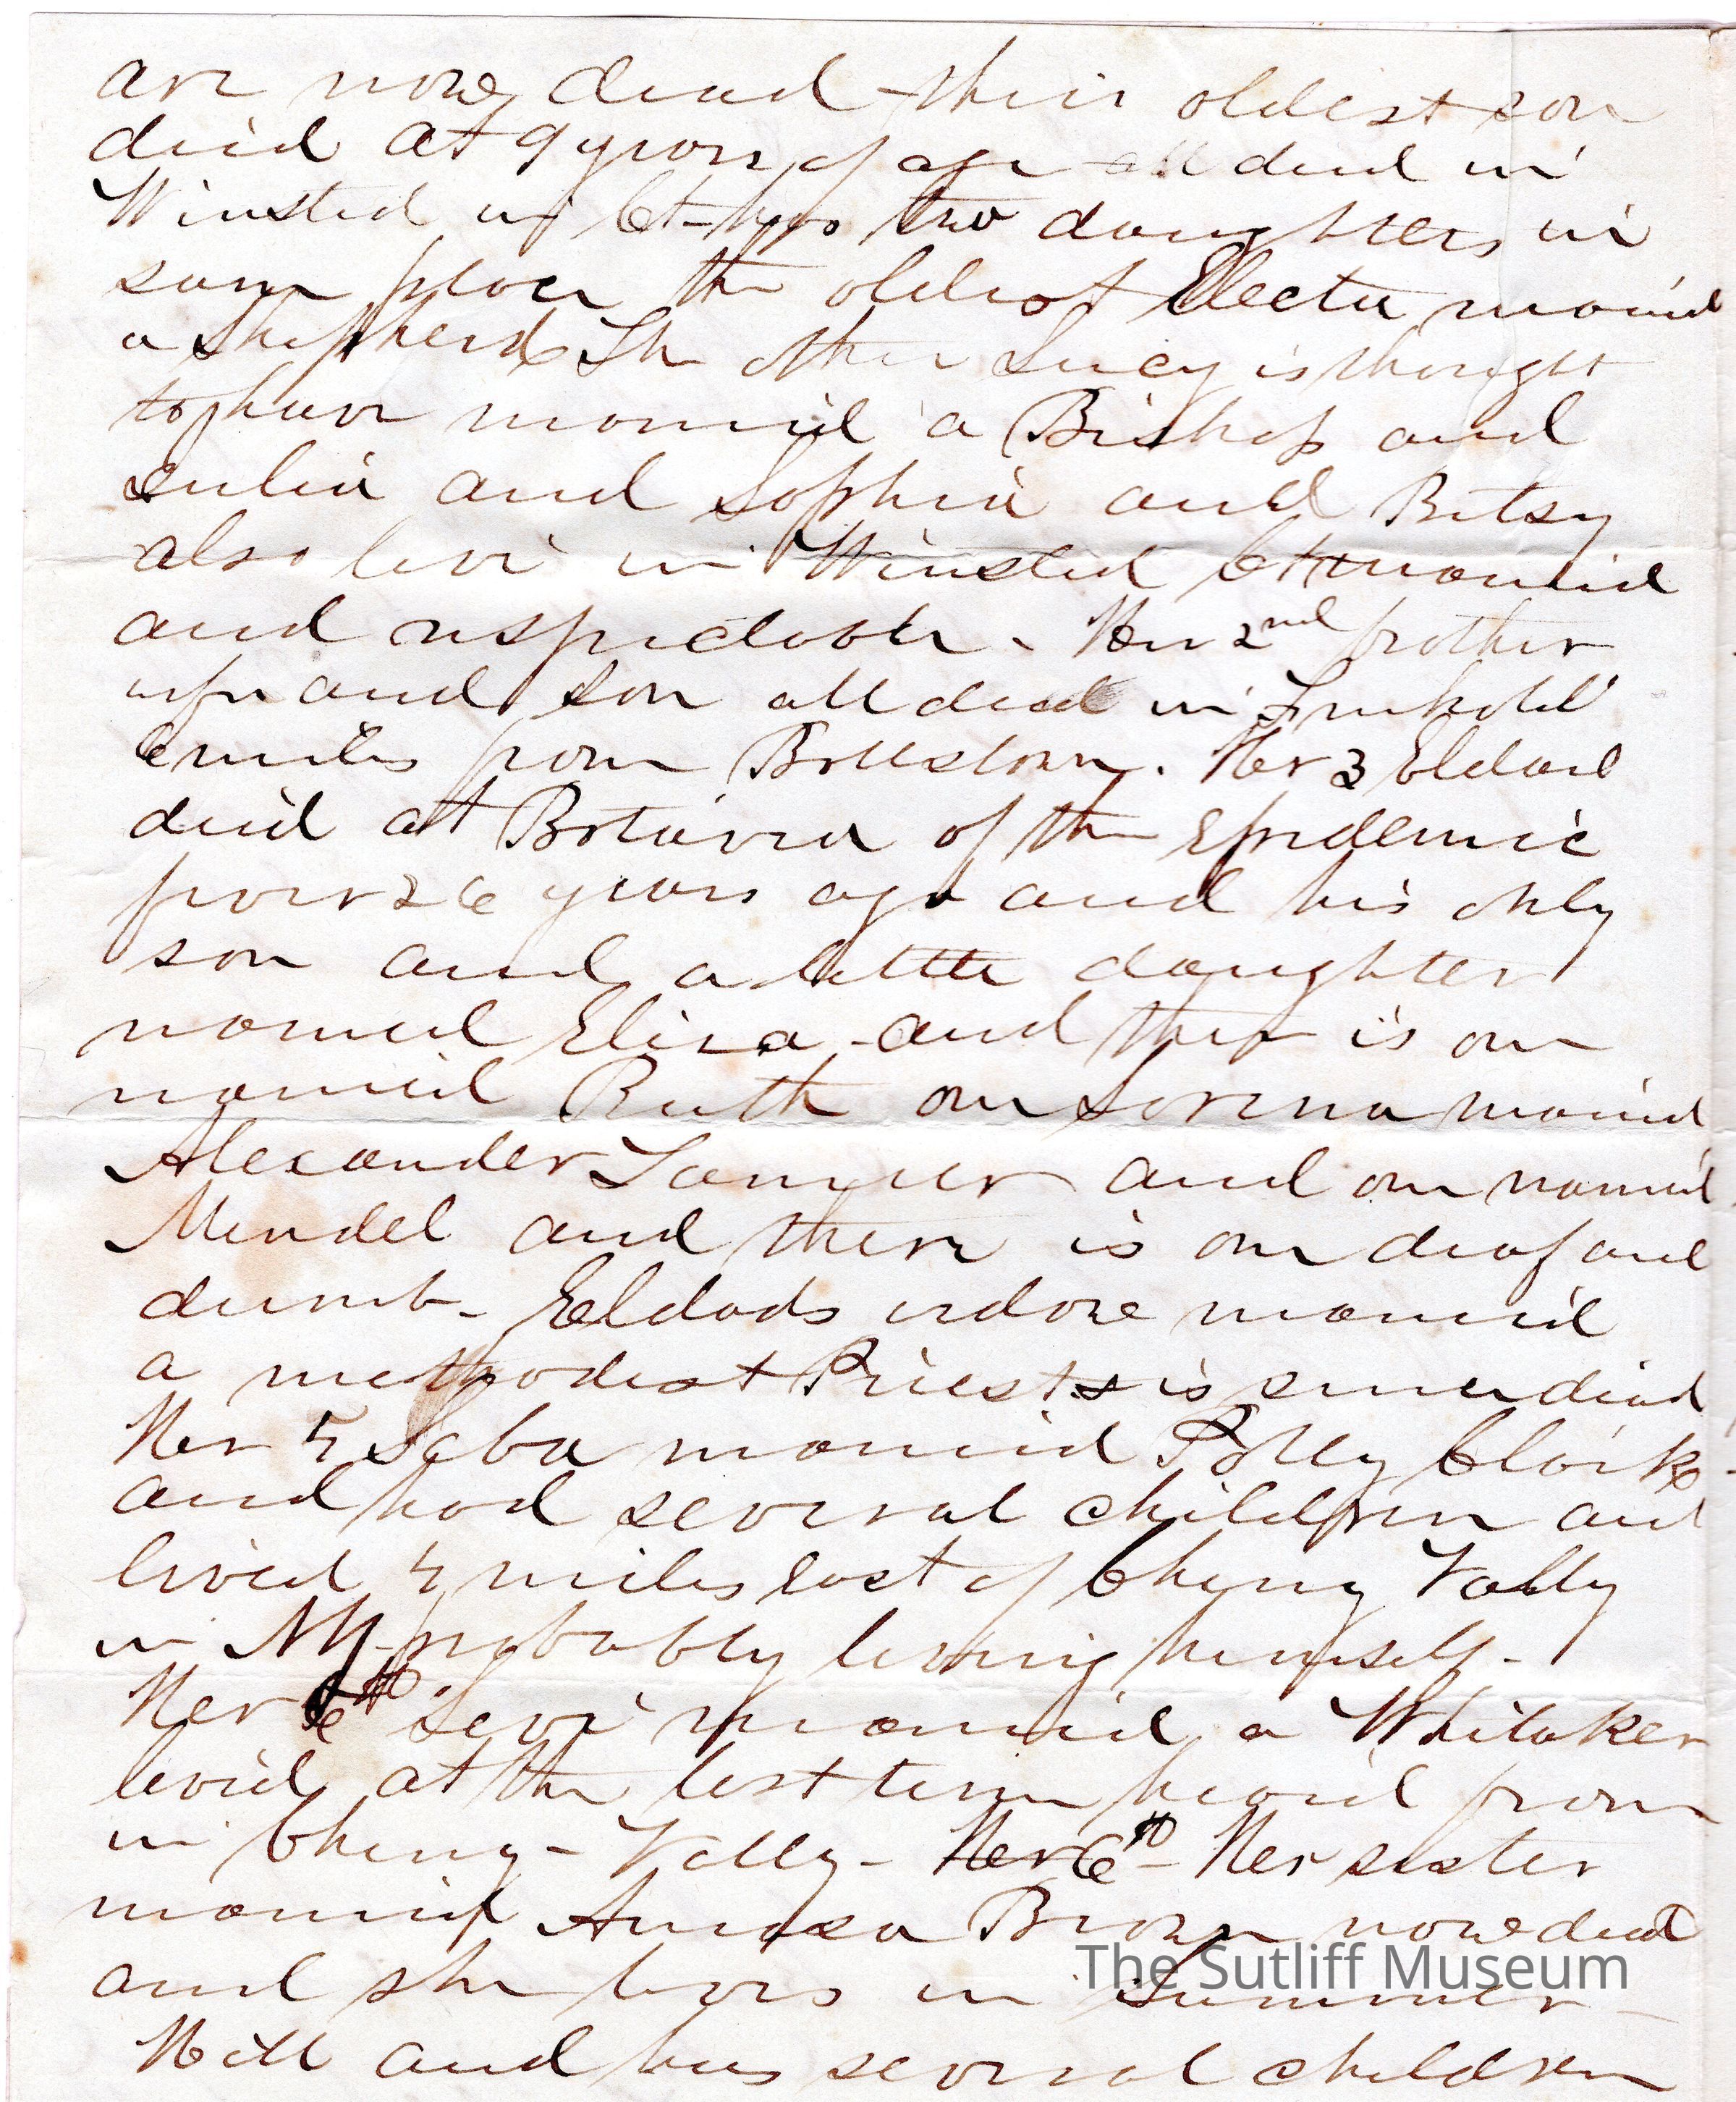 are now dead - their oldest son
died at 9 years of age all died in
Winsted in Ct - two daughters in
same place the oldest Electa married
a Shepherd The other Lucy is thought
to have married a Bishop and
Julia and Sophia and Betsy
also live in Winsted Ct married
and respectable. Her 2nd brother
wife and son all died in
6 miles from Ballstown. Her 3 Eldad
died at Batavia of the Epidemic
fever 26 years ago and his only
son and a little daughter
named Eliza - and there is one
named Ruth one Lorena married
Alexander and one named
Mendel and there is one deaf and
dumb - Eldads widow married
a methodist Priest is since died
Her 4 Seba married Polly Clark
and had several children and
lived 4 miles east of Cherry Vally
in NY probably living himself -
Her Levi married a Whitaker
lived at the last time heard from
in Cherry - Vally - Her 6th - Her sister
married Amasa Brown now dead
and she lives in Summer -
Hill and has several children
The Sutliff Museum